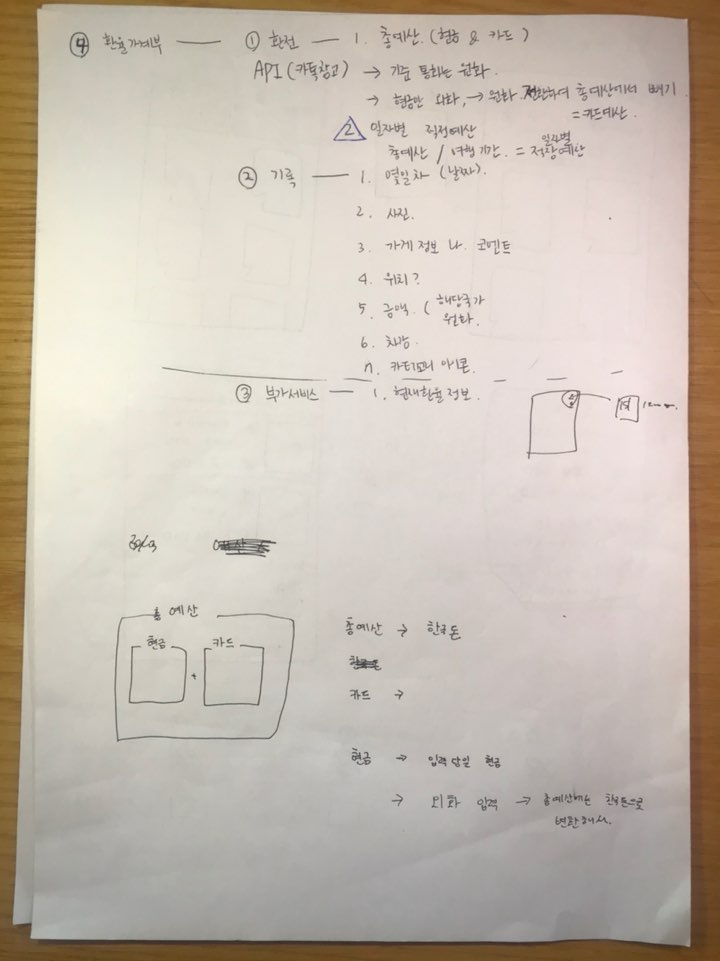 ④ 환율가계부 — ① 환전 — 1. 총예산. (현금 & 카드)
API (카톡참고) → 기준 통화는 원화.
→ 현금만 외화, → 원화 전환하여 총예산에서 빼기
= 카드예산.
2 일자별 적정예산
총예산 / 여행기간. = 일자별 적정예산
② 기록 — 1. 몇일차 (날짜).
2. 사진.
3. 가게 정보 나. 코멘트
4. 위치?
5. 금액. ( 해당국가
원화.
6. 차감.
7. 카테고리 아이콘.
③ 부가서비스 — 1. 현재환율정보.
총 예산
현금 + 카드
총예산 → 한국돈
카드 →
현금 → 입력 당일 환율
→ 외화 입력 → 총예산에는 한국돈으로
변환해서.